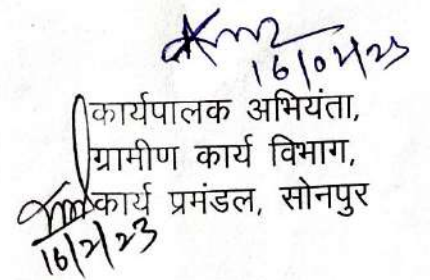 16/02/23
कार्यपालक अभियंता,
ग्रामीण कार्य विभाग,
कार्य प्रमंडल, सोनपुर
16/2/23